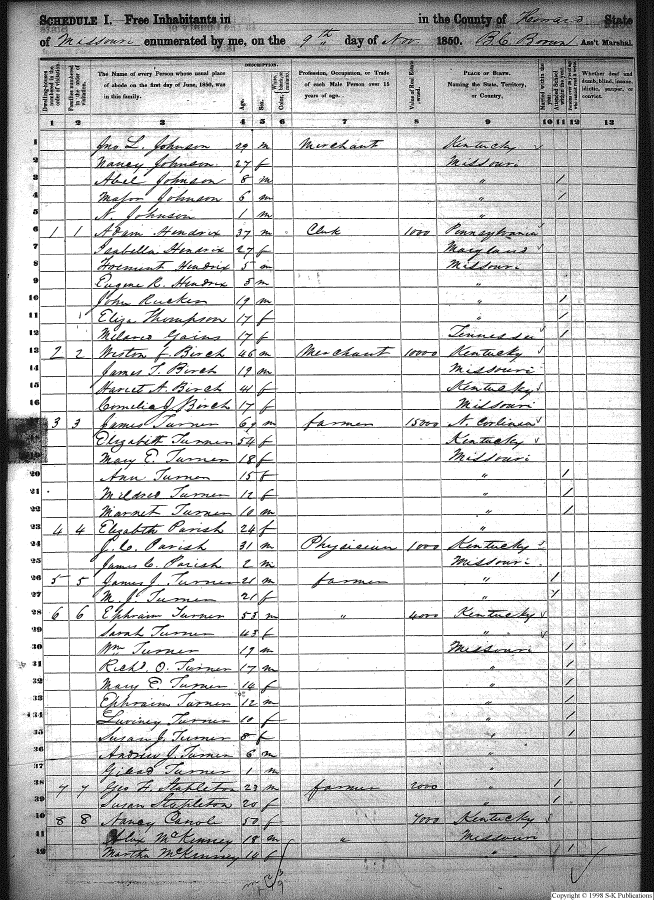 SCHEDULE I. Free Inhabitants in in the County of Howard State
of Missouri enumerated by me, on the 9th day of Nov. 1850. B. C. Ass't Marshal.
DESCRIPTION.
Dwelling-houses numbered in the order of visitation. Families numbered in the order of visitation. The Name of every Person whose usual place of abode on the first day of June, 1850, was in this family. Age. Sex. Color, Profession, Occupation, or Trade of each Male Person over 15 years of age. Value of Real Estate owned. PLACE OF BIRTH. Naming the State, Territory, or Country. Whether deaf and dumb, blind, insane, idiotic, pauper, or convict.
1 2 3 4 5 6 7 8 9 10 11 12 13
1 Jno L. Johnson 29 m Merchant Kentucky
2 Nancy Johnson 27 f Missouri
3 Abel Johnson 8 m " /
4 Major Johnson 6 m " /
5 N. Johnson 1 m "
6 1 1 Adam Hendrix 37 m Clerk 1000 Pennsylvania
7 Isabella Hendrix 27 f Maryland
8 Hendrix 5 m Missouri
9 Eugene R. Hendrix 3 m "
10 John Rucker 19 m " /
11 Eliza Thompson 17 f " /
12 Gains 17 f Tennessee /
13 2 2 Weston F. Birch 46 m Merchant 10000 Kentucky
14 James T. Birch 19 m Missouri
15 Harriet A. Birch 41 f Kentucky
16 Cornelia J. Birch 17 f Missouri
3 3 James Turner 69 m farmer 15000 N. Corlinia
Elizabeth Turner 54 f Kentucky
Mary E. Turner 18 f Missouri
20 Ann Turner 15 f " /
21 Mildred Turner 12 f " /
22 Turner 10 m " /
23 4 4 Elizabeth Parish 24 f "
24 J. C. Parish 31 m Physician 1000 Kentucky
25 James C. Parish 2 m Missouri
26 5 5 James J. Turner 21 m farmer " /
27 M. J. Turner 21 f " /
28 6 6 Ephraim Turner 53 m " 4000 Kentucky
29 Sarah Turner 43 f "
30 Wm Turner 19 m Missouri /
31 Richd O. Turner 17 m " /
32 Mary E. Turner 14 f " /
33 Ephraim Turner 12 m " /
34 Luviney Turner 10 f " /
35 Susan J. Turner 8 f " /
36 Andrew J. Turner 6 m "
37 Turner 1 m "
38 7 7 Geo H. Stapleton 23 m farmer 2000 " /
39 Susan Stapleton 20 f " /
40 8 8 Nancy 50 f 7000 Kentucky
41 McKinney 18 m " Missouri
42 Martha McKinney 14 f " /
Copyright © 1998 S-K Publications